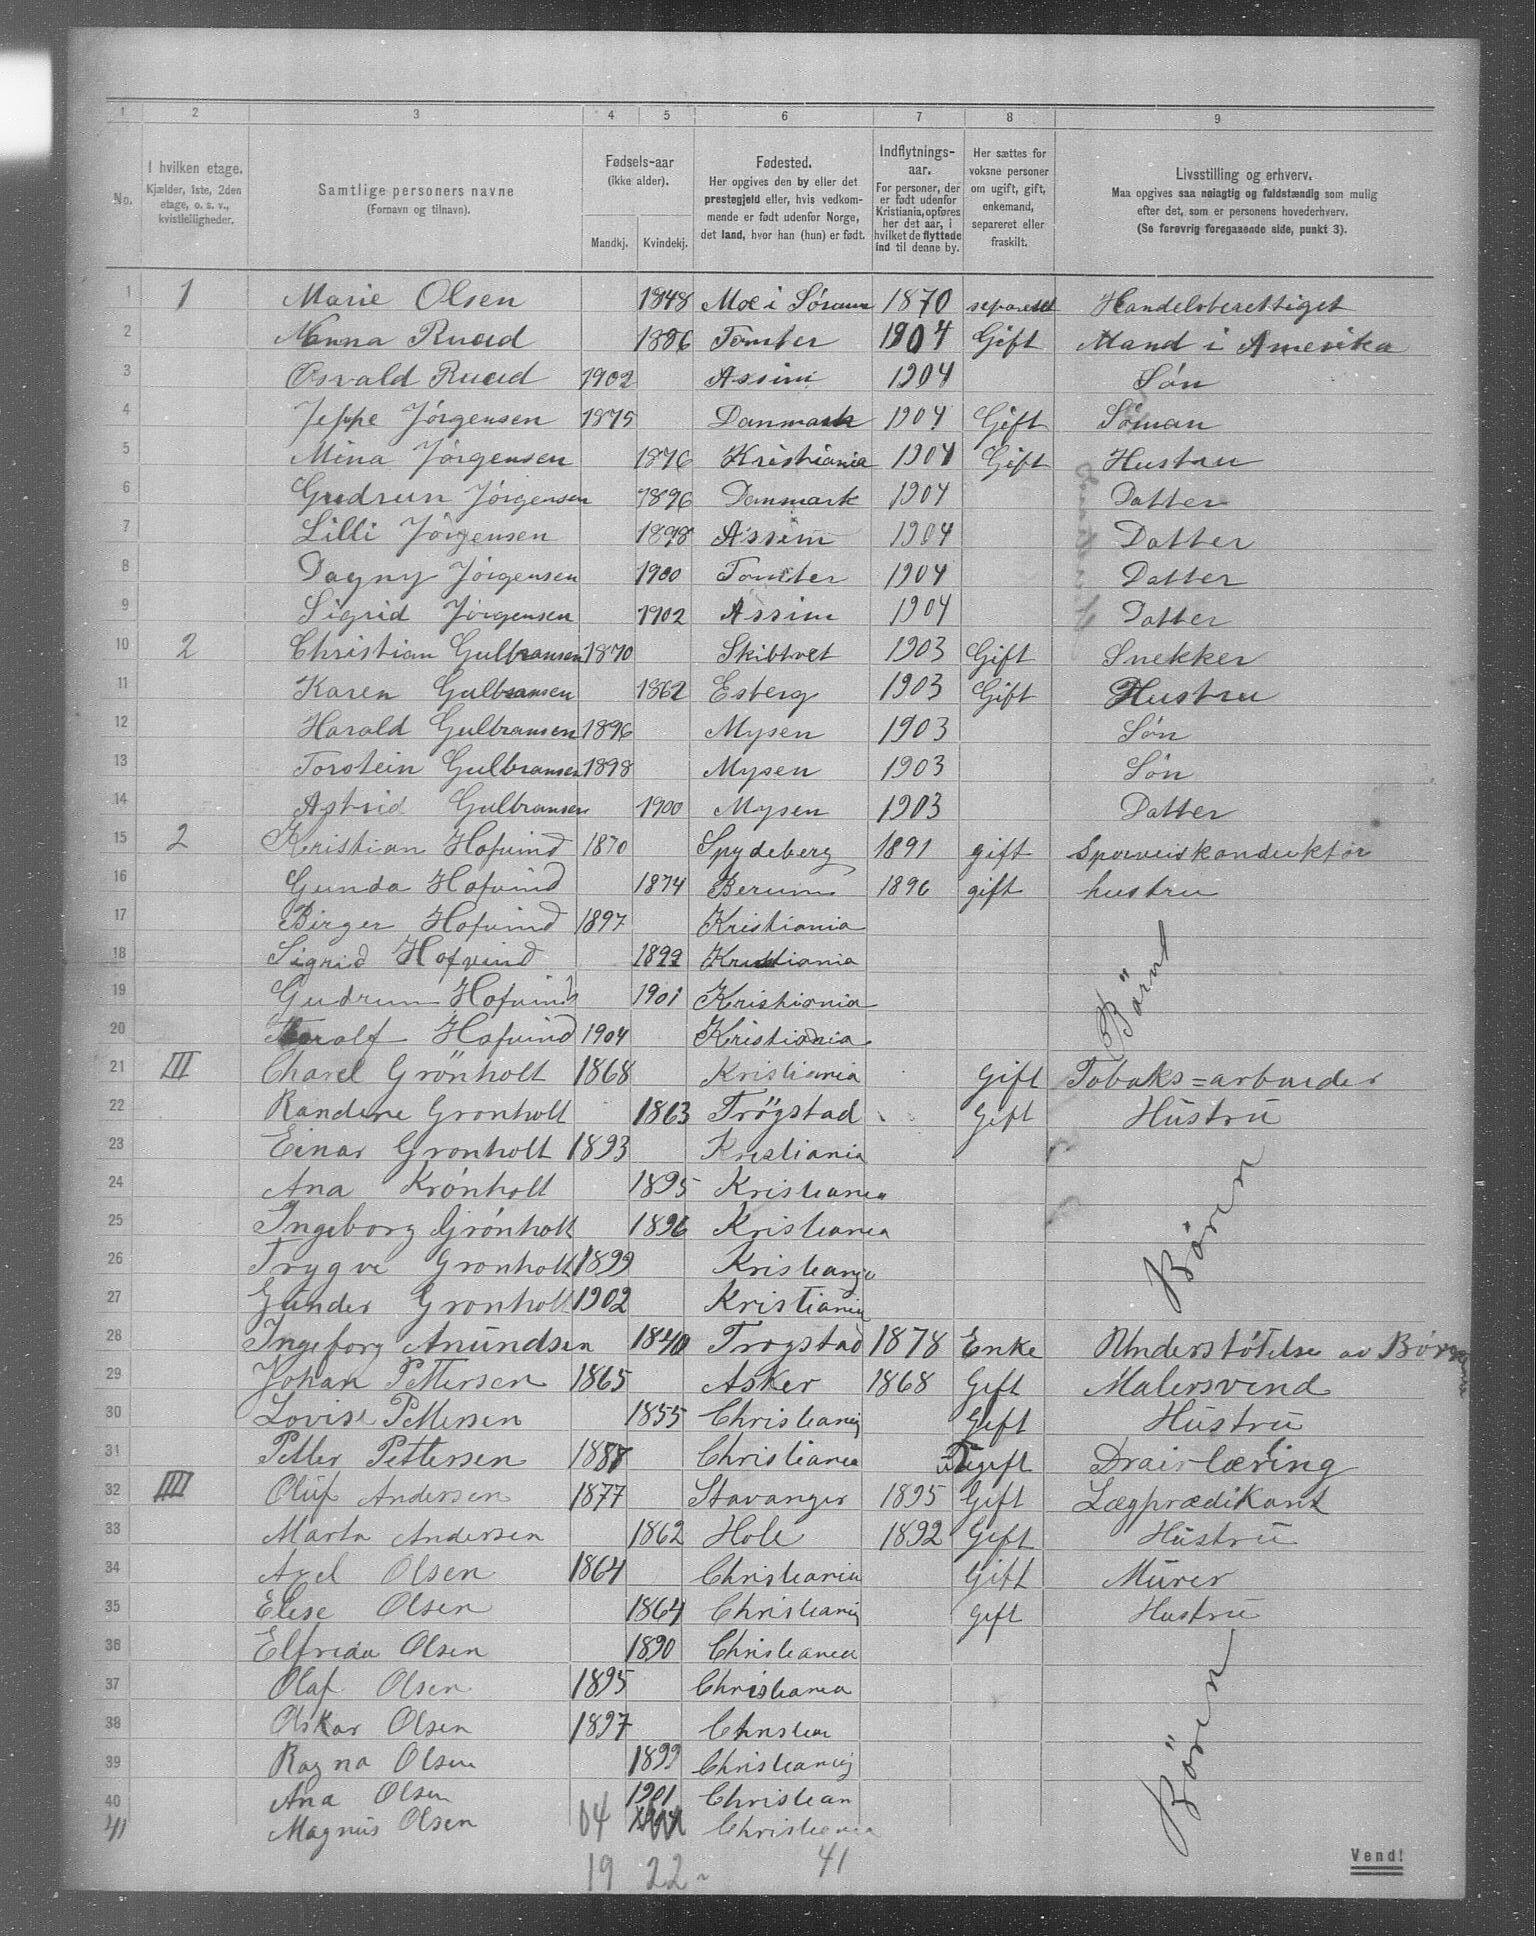 1 2 3 4 5 6 7 8 9
No.
I hvilken etage.
Kjælder, 1ste, 2den
etage, o. s. v.,
kvistleiligheder.
Samtlige personers navne
(Fornavn og tilnavn).
Fødsels-aar
(ikke alder).
Mandkj. Kvindekj.
Fødested.
Her opgives den by eller det
prestegjeld eller, hvis vedkom-
mende er født udenfor Norge,
det land, hvor han (hun) er født.
Indflytnings-
aar.
For personer, der
er født udenfor
Kristiania, opføres
her det aar, i
hvilket de flyttede
ind til denne by.
Her sættes for
voksne personer
om ugift, gift,
enkemand,
separeret eller
fraskilt.
Livsstilling og erhverv.
Maa opgives saa nøiagtig og fuldstændig som mulig
efter det, som er personens hovederhverv.
(Se forøvrig foregaaende side, punkt 3).
1 1 Marie Olsen 1848 Moe i Sörum 1870 separert Handelsberettiget
2 Nanna Ruud 1886 Tomter 1904 Gift Mand i Amerika
3 Osvald Ruud 1902 Assim 1904 Sön
4 Jeppe Jörgensen 1875 Danmark 1904 Gift Söman
5 Mina Jörgensen 1876 Kristiania 1904 Gift Hustru
6 Gudrun Jörgensen 1896 Danmark 1904 Datter
7 Lilli Jörgensen 1898 Assim 1904 Datter
8 Dagny Jörgensen 1900 Tomter 1904 Datter
9 Sigrid Jörgensen 1902 Assim 1904 Datter
10 2 Christian Gulbransen 1870 Skibtvet 1903 Gift Snekker
11 Karen Gulbransen 1862 Esberg 1903 Gift Hustru
12 Harald Gulbransen 1896 Mysen 1903 Sön
13 Torstein Gulbransen 1898 Mysen 1903 Sön
14 Astrid Gulbransen 1900 Mysen 1903 Datter
15 2 Kristian Hofvind 1870 Spydeberg 1891 gift Sporveiskonduktør
16 Gunda Hofvind 1874 Berum 1896 gift hustru
17 Birger Hofvind 1897 Kristiania
18 Sigrid Hofvind 1899 Kristiania
19 Gudrun Hofvind 1901 Kristiania
20 Toralf Hofvind 1904 Kristiania
Börn
21 III Charel Grönholt 1868 Kristiania Gift Tobaks=arbeider
22 Randine Grönholt 1863 Trögstad Gift Hustru
23 Einar Gronholt 1893 Kristiania
24 Ana Krónholt 1895 Kristiania
25 Ingeborg Grónholt 1896 Kristiania
26 Trygve Gronholt 1899 Kristiania
27 Gunder Gronholt 1902 Kristiania
Börn
28 Ingeborg Anundsen 1840 Trogstad 1878 Enke Understötelse av Börnene
29 Johan Pettersen 1865 Asker 1868 Gift Malersvend
30 Lovise Pettersen 1855 Christiania Gift Hustru
31 Petter Pettersen 1888 Christiania Ugift Draierlæring
32 IIII Oluf Andersen 1877 Stavanger 1895 Gift Lægprædikant
33 Marta Andersen 1862 Hole 1892 Gift Hustru
34 Axel Olsen 1864 Christiania Gift Murer
35 Elise Olsen 1864 Christiania Gift Hustru
36 Elfrida Olsen 1890 Christiania
37 Olaf Olsen 1895 Christiania
38 Oskar Olsen 1897 Christian
39 Ragna Olsen 1899 Christiania
40 Ana Olsen 1901 Christian
41 Magnus Olsen 04 Christiania
Börn
19 22 41
Vend!